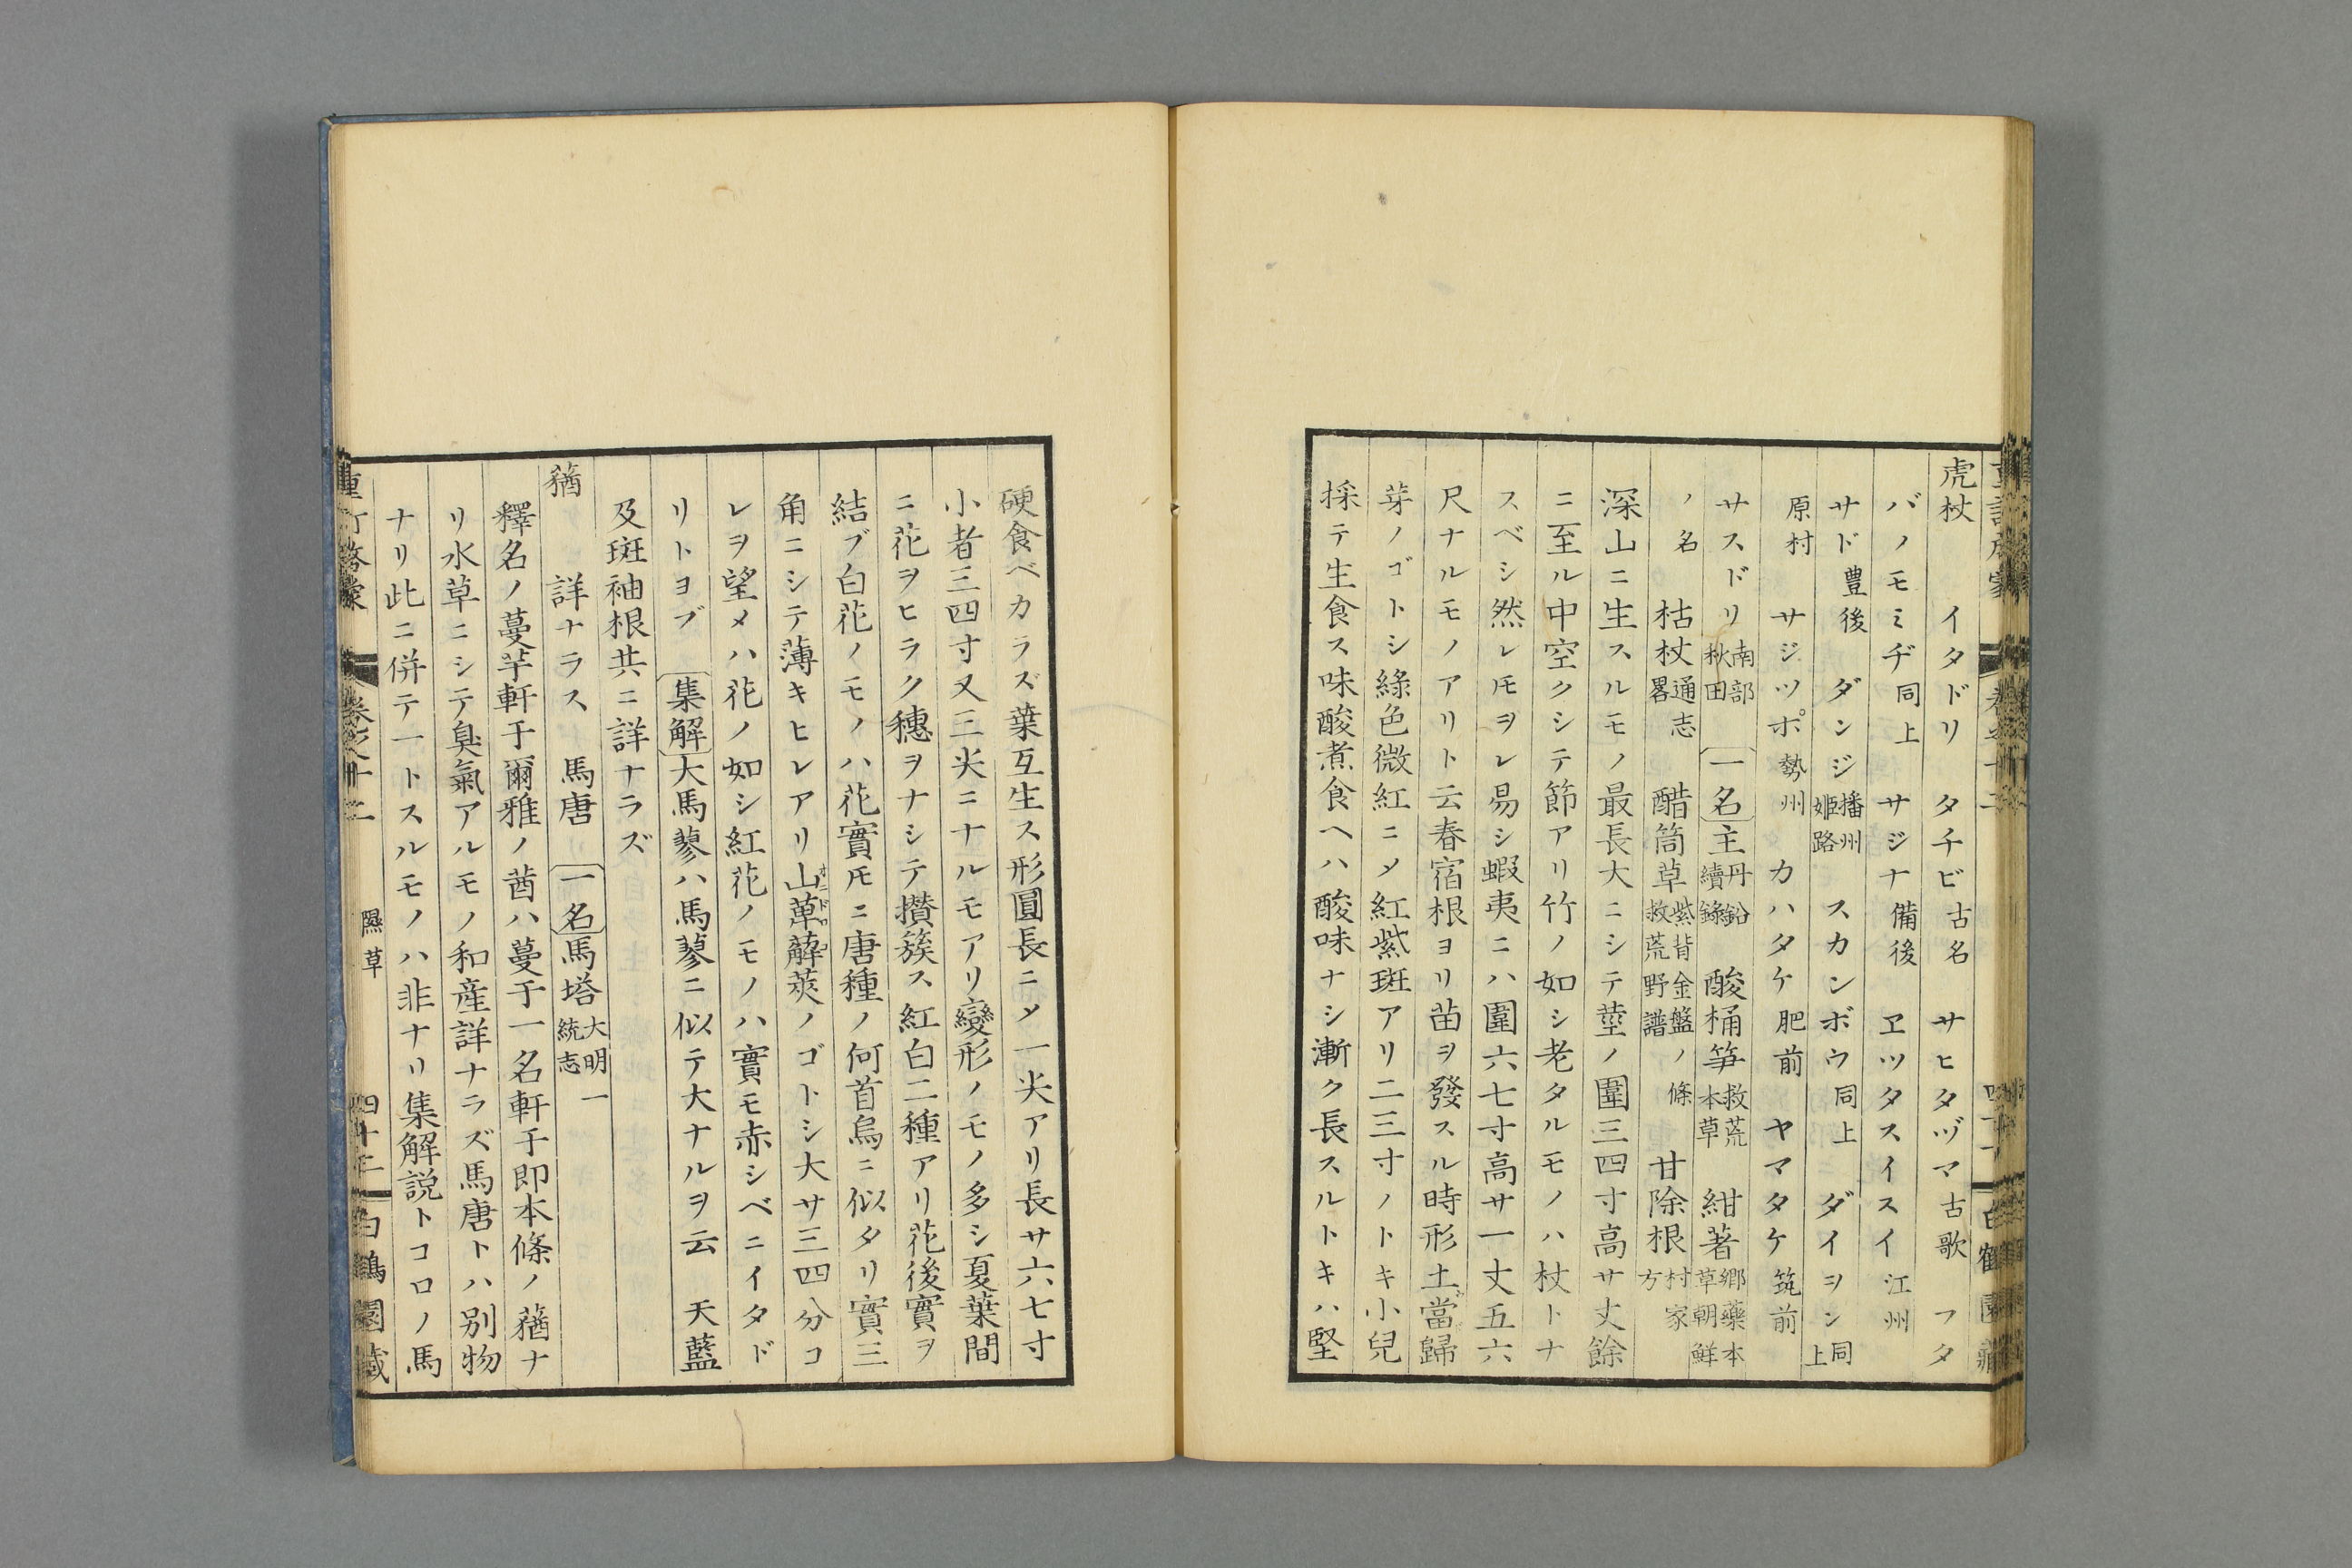 虎杖 イタドリ タチヒ古名 サヒタヅマ古歌 フタ
バノモミヂ同上 サジナ備後 ヱツタスイスイ江州
サド豊後 ダンジ播州姫路 スカンボウ同上 ダイヲン同上
原村 サジツポ勢州 カハタケ肥前 ヤマタケ筑前
サスドリ南部秋田 一名主丹鉛續錄 酸桶笋救荒本草 紺著郷藥本草朝鮮
ノ名 枯杖通志畧 醋筒草救荒野譜紫背金盤ノ條 甘除根村家方
深山ニ生スルモノ最長大ニシテ莖ノ圍三四寸高サ丈餘
ニ至ル中空クシテ節アリ竹ノ如シ老タルモノハ杖トナ
スベシ然レ𪜈ヲレ易シ蝦夷ニハ圍六七寸高サ一丈五六
尺ナルモノアリト云春宿根ヨリ苗ヲ發スル時形土當歸
芽ノゴトシ綠色微紅ニ〆紅紫斑アリ二三寸ノトキ小兒
採テ生食ス味酸煮食ヘハ酸味ナシ漸ク長スルトキハ堅
硬食ベカラズ葉互生ス形圓長ニ〆一尖アリ長サ六七寸
小者三四寸又三尖ニナルモアリ變形ノモノ多シ夏葉間
ニ花ヲヒラク穗ヲナシテ攅簇ス紅白二種アリ花後實ヲ
結ブ白花ノモノハ花實𪜈ニ唐種ノ何首烏ニ似タリ實三
角ニシテ薄キヒレアリ山萆薢莢ノゴトシ大サ三四分コ
レヲ望メハ花ノ如シ紅花ノモノハ實モ赤シベニイタド
リトヨブ 集解大馬蓼ハ馬蓼ニ似テ大ナルヲ云 天藍
及斑袖根共ニ詳ナラズ
蕕 詳ナラス 馬唐 一名馬塔大明一統志
釋名ノ蔓芋軒于爾雅ノ莤ハ蔓于一名軒于即本條ノ蕕ナ
リ水草ニシテ臭氣アルモノ和産詳ナラズ馬唐トハ別物
ナリ此ニ併テ一トスルモノハ非ナリ集解説トコロノ馬
卷之十二 隰草 四十三 白鶴園藏